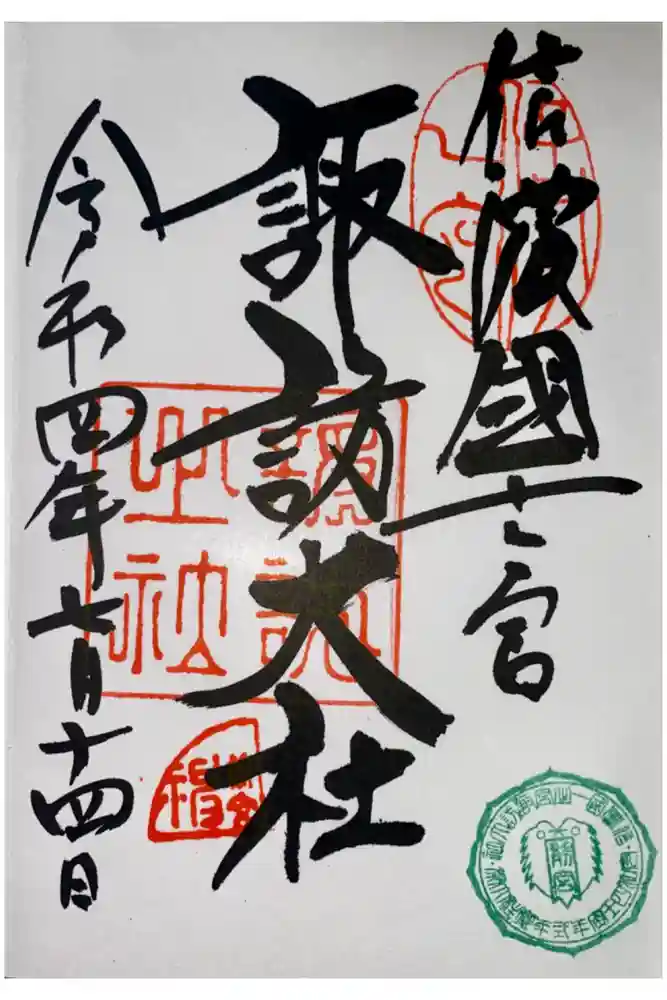 信濃國一之宮
諏訪大社
令和四年七月十四日
諏訪之社
前宮